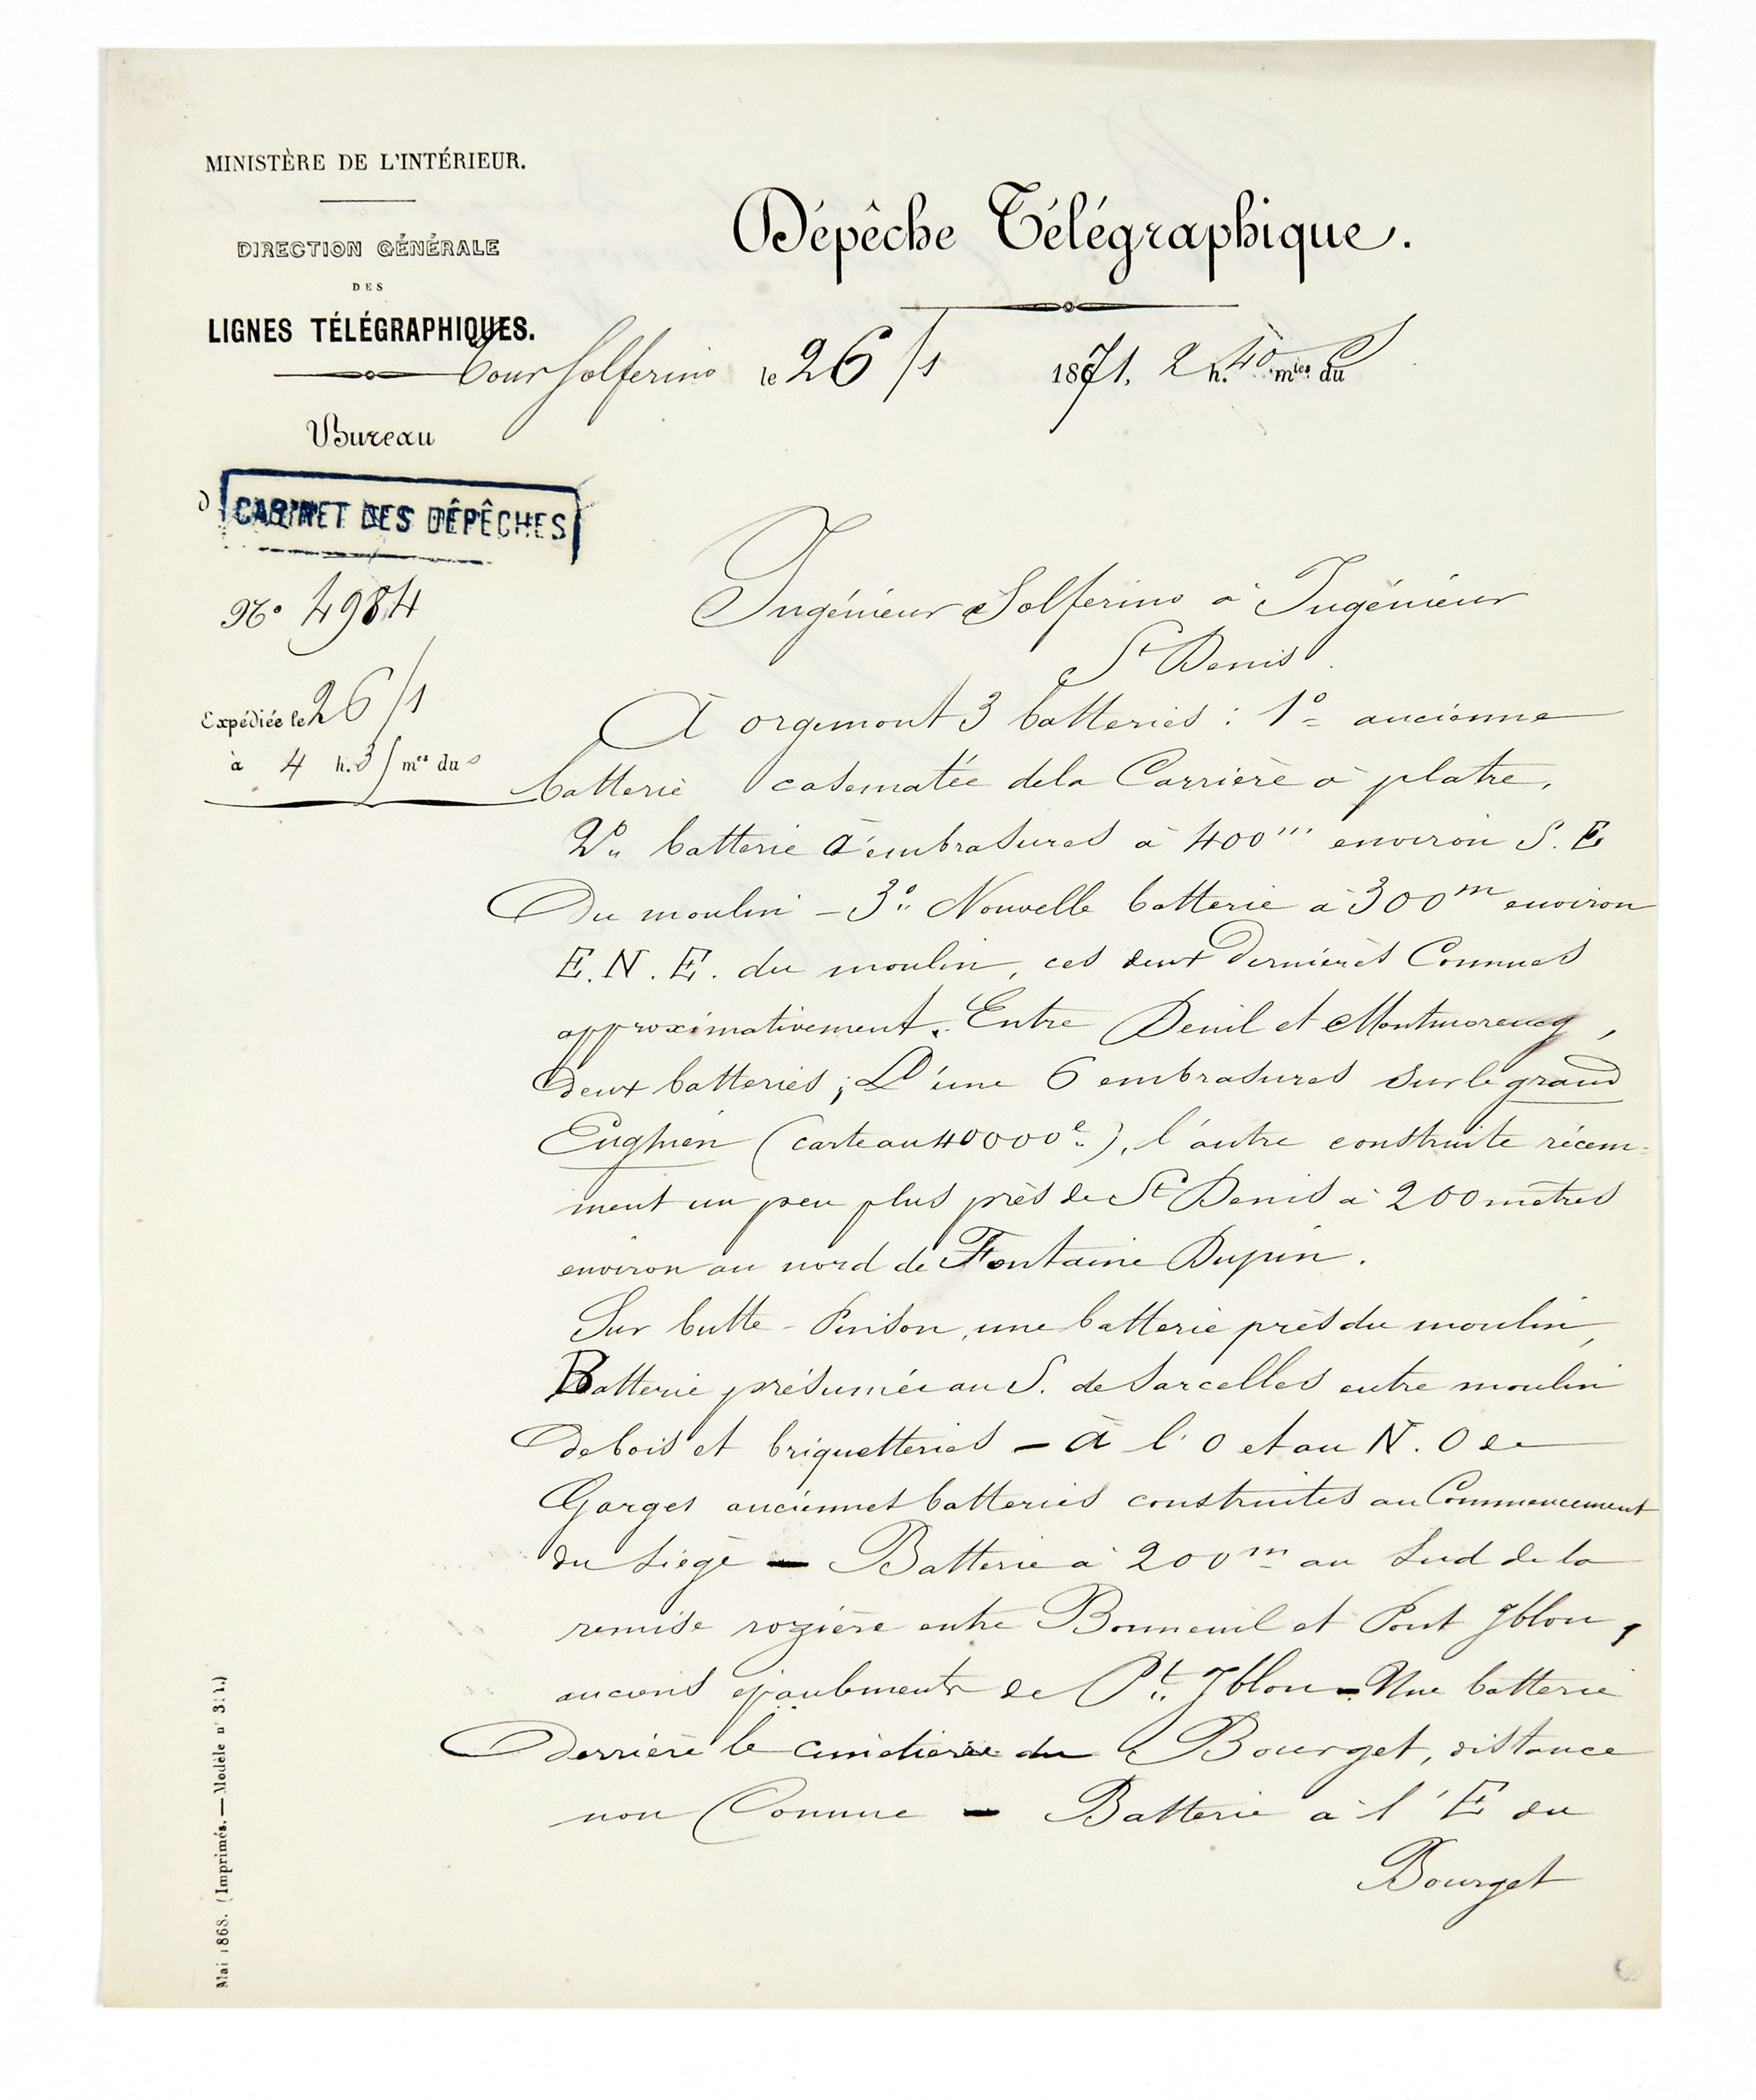 MINISTÈRE DE L'INTÉRIEUR.
DIRECTION GÉNÉRALE
DES
LIGNES TÉLÉGRAPHIQUES.
Dépêche Télégraphique.
Tour Solferino le 26/1 1871, 2 h. 40 mtes du S
Bureau
d
CABINET DES DÉPÊCHES
No 4984
Expédiée le 26/1
à 4 h. 35 mes du s
Ingénieur Solferino à Ingénieur
St Denis.
A orgemont 3 batteries : 1o ancienne
batterie casematée dela Carrière à platre,
2o batterie à embrasures à 400m environ S. E
Du moulin – 3o Nouvelle batterie à 300m environ
E. N. E. du moulin, ces deux Dernières Connues
approximativement. Entre Deuil et Montmorency,
Deux batteries ; L'une 6 embrasures sur le grand
Enghien (carte au 40000e), l'autre construite récem-
ment un peu plus près de St Denis à 200 mètres
environ au nord de Fontaine Dupin.
Sur butte - Pinson, une batterie près du moulin,
Batterie présumée au S. de Sarcelles entre moulin
de bois et briquetteries – à l'O et au N. O de
Garges anciennes batteries construites au Commencement
du siège – Batterie à 200m au Sud de la
remise rozière entre Bonneuil et Pont Yblon,
anciens épaulements de Pt Yblon – Une batterie
Derrière le cimetière du Bourget, distance
non Connue – Batterie à l'E du
Bourget
Mai 1868. (Imprimés. — Modèle no